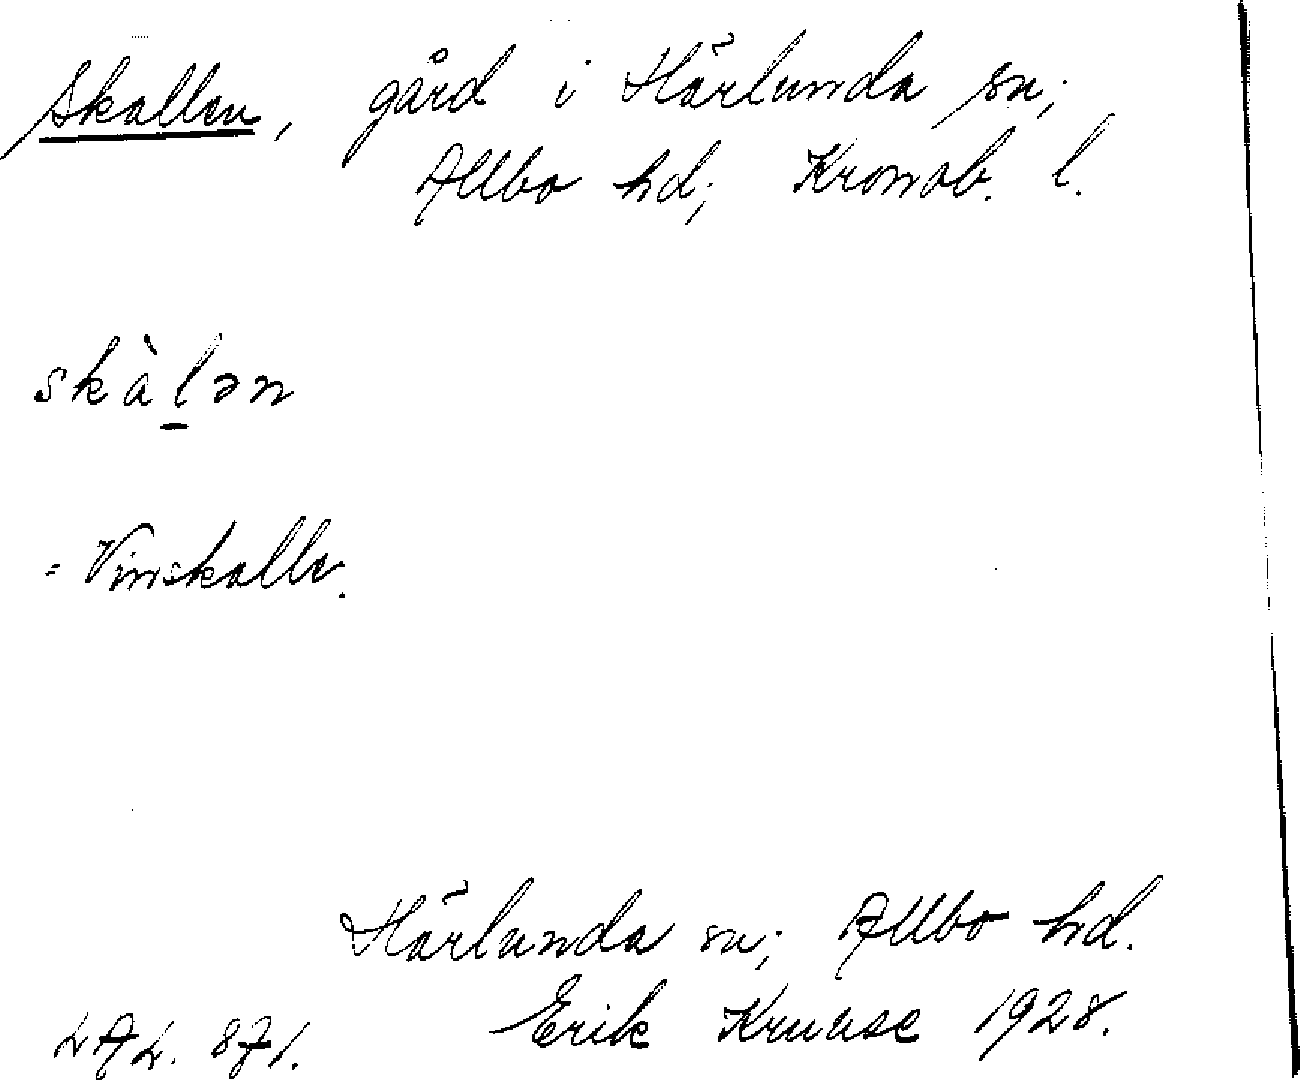 Skallen, gård i Härlunda sn;
Allbo hd; Kronob. l.
skàlən
= Vinskalle.
Härlunda sn; Allbo hd.
LAL. 871. Erik Kruuse 1928.